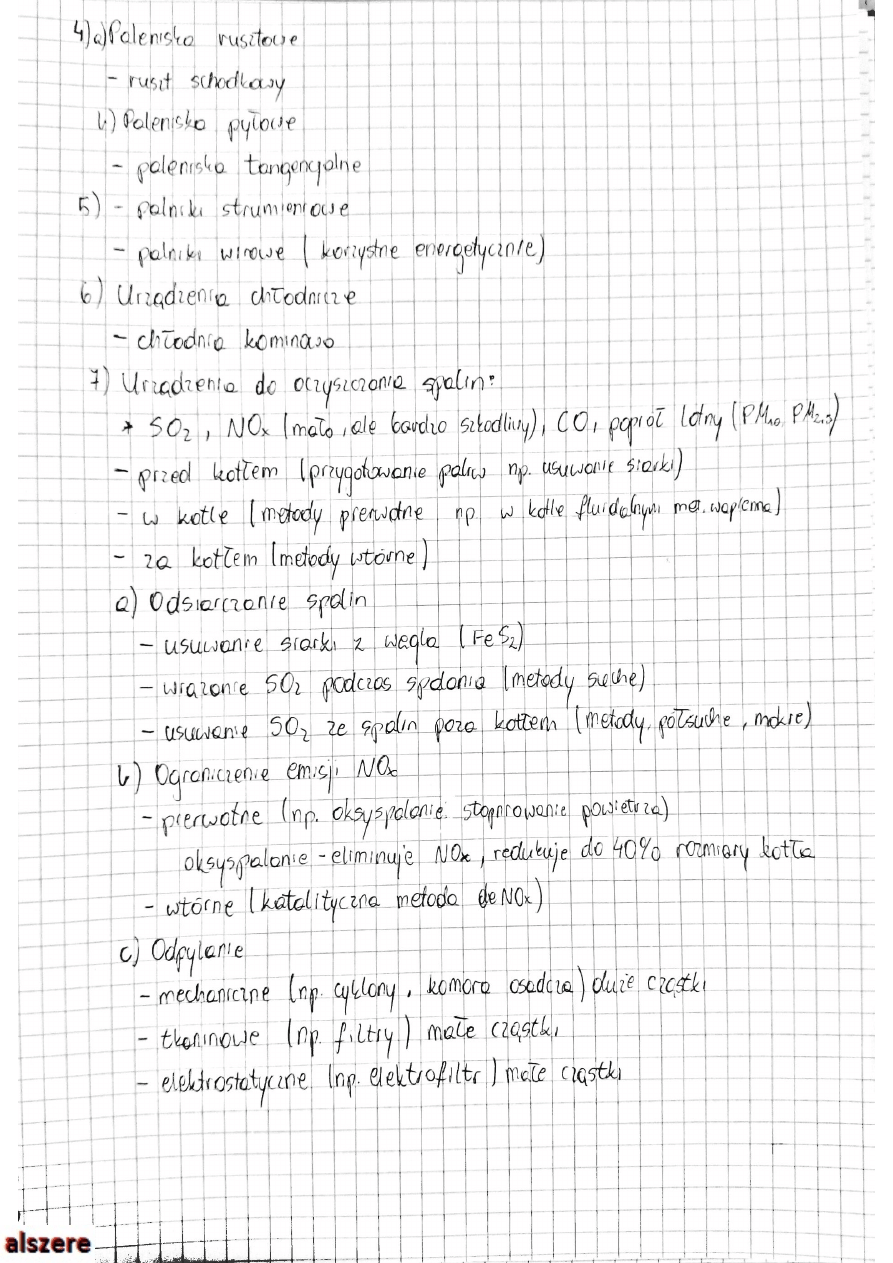 4) a) Palenisko rusztowe
- ruszt schodkowy
b) Palenisko pyłowe
- palenisko tangencjalne
5) - palniki strumieniowe
- palniki wirowe (korzystne energetycznie)
6) Urządzenia chłodnicze
- chłodnia kominowo
7) Urządzenia do oczyszczania spalin:
* SO2, NOx (mało, ale bardzo szkodliwy), CO, popiół lotny (PM10, PM2,5)
- przed kotłem (przygotowanie paliw np. usuwanie siarki)
- w kotle (metody pierwotne np. w kotle fluidalnym met. wapienna)
- za kotłem (metody wtórne)
a) Odsiarczanie spalin
- usuwanie siarki z węgla (FeS2)
- wiązanie SO2 podczas spalania (metody suche)
- usuwanie SO2 ze spalin poza kotłem (metody półsuche, mokre)
b) Ograniczenie emisji NOx
- pierwotne (np. oksyspalanie stopniowanie powietrza)
oksyspalanie - eliminuje NOx, redukuje do 40% rozmiary kotła
- wtórne (katalityczna metoda deNOx)
c) Odpylanie
- mechaniczne (np. cyklony, komora osadcza) duże cząstki
- tkaninowe (np. filtry) małe cząstki
- elektrostatyczne (np. elektrofiltr) małe cząstki
alszere